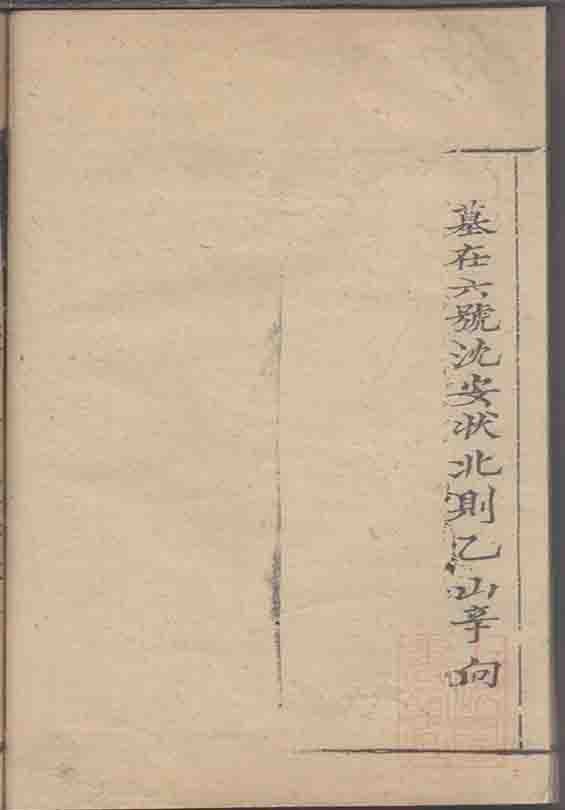 墓在六號沈安状北則乙山辛向